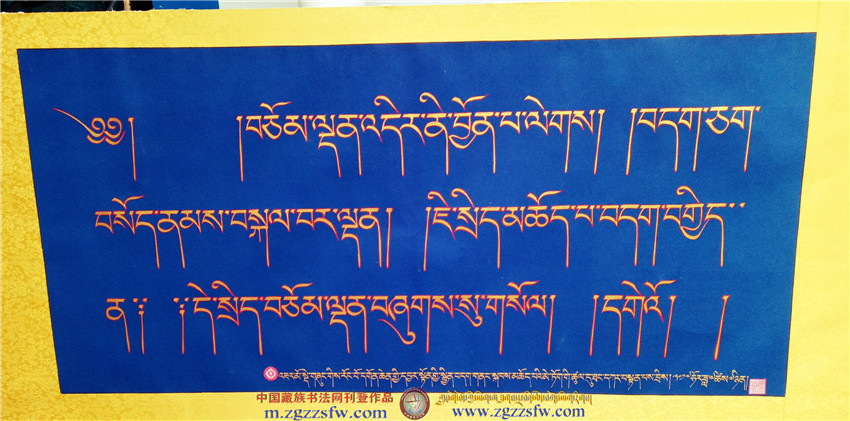 ༄༅། །བཅོམ་ལྡན་འདིར་ནི་བྱོན་པ་ལེགས། །བདག་ཅག་
བསོད་ནམས་བསྐལ་བར་ལྡན། །ཇི་སྲིད་མཆོད་པ་བདག་བགྱིད་
ན༔ ༔དེ་སྲིད་བཅོམ་ལྡན་བཞུགས་སུ་གསོལ། །དགེའོ། །
中国藏族书法网刊登作品
m.zgzzsfw.com www.zgzzsfw.com